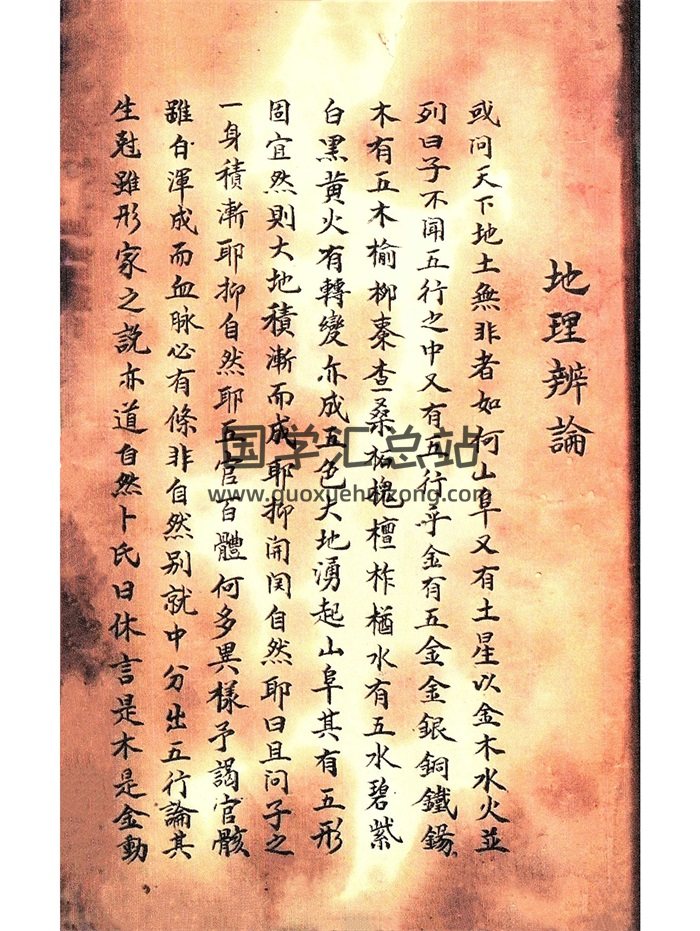 地理辨論
或問天下地土無非者如何山阜又有土星以金木水火並
列曰子不聞五行之中又有五行乎金有五金金銀銅鐵錫
木有五木榆柳棗杏桑柘槐檀柞楢水有五水碧紫
白黑黃火有轉變亦成五色大地湧起山阜其有五形
固宜然則大地積漸而成耶抑開闢自然耶曰且問子之
一身積漸耶抑自然耶五官百體何多異樣予謁官骸
雖自渾成而血脉必有條非自然別就中分出五行論其
生尅雖形家之說亦道自然卜氏曰休言是木是金動
国学汇总站
www.guoxuehuizong.com